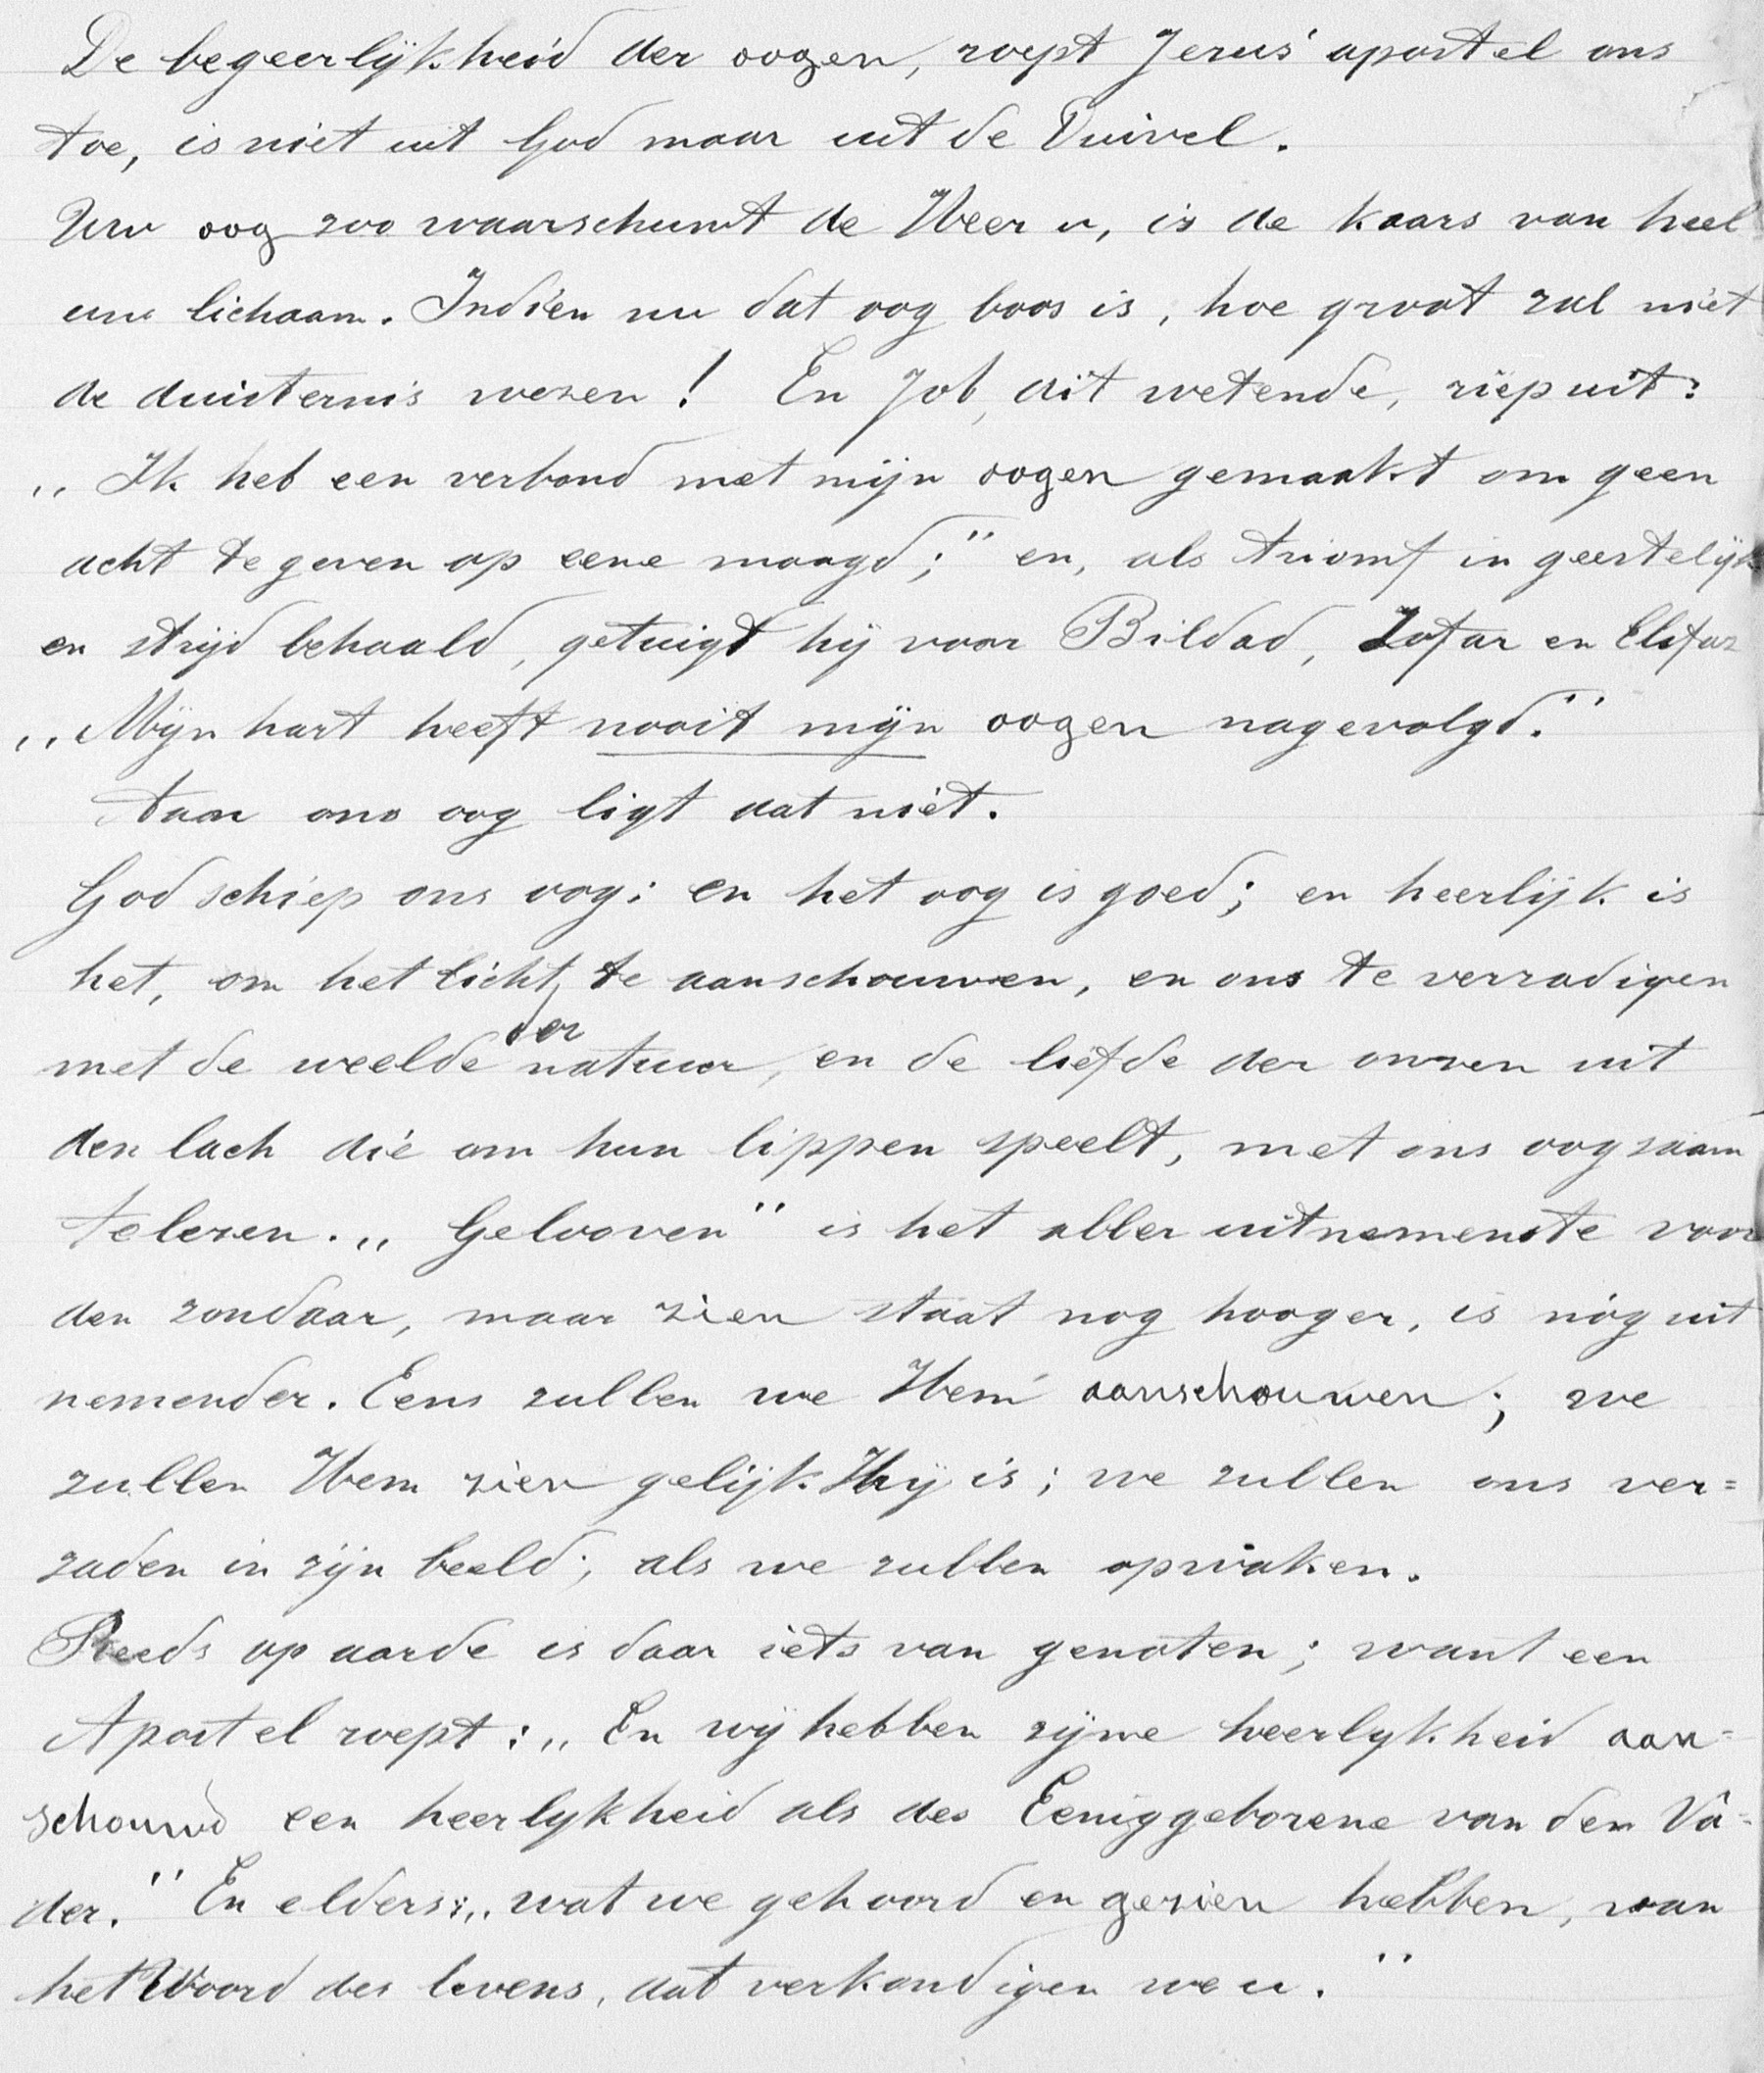 De begeerlijkheid der oogen, roept Jezus' apostel ons
toe, is niet uit God maar uit de Duivel.
Uw oog zoo waarschuwt de Heer u, is de kaars van heel
uw lichaam. Indien nu dat oog boos is, hoe groot zal niet
de duisternis wezen! En Job, dit wetende, riep uit:
„Ik heb een verbond met mijn oogen gemaakt om geen
acht te geven op eene maagd;" en, als triomf in geestelijk
en strijd behaald, getuigt hij voor Bildad, Zofar en Elifaz
„Mijn hart heeft nooit mijn oogen nagevolgd."
Aan ons oog ligt dat niet.
God schiep ons oog: en het oog is goed; en heerlijk is
het, om het licht, te aanschouwen, en ons te verzadigen
met de weelde der natuur, en de liefde der onzen uit
den lach die om hun lippen speelt, met ons oog saam
te lezen. „Gelooven" is het aller uitnemenste voor
den zondaar, maar zien staat nog hooger, is nóg uit
nemender. Eens zullen we Hem aanschouwen; we
zullen Hem zien gelijk Hij is; we zullen ons ver=
zaden in zijn beeld; als we zullen opwaken.
Reeds op aarde is daar iets van genoten; want een
Apostel roept: „En wij hebben zijne heerlijkheid aan=
schouwd een heerlijkheid als des Eeniggeborene van den Va-
der." En elders: „wat we gehoord en gezien hebben, van
het Woord des levens, dat verkondigen we u."